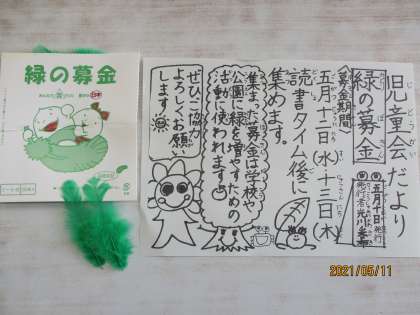 緑の募金
児童会だより
緑の募金
五月十日発行
〈募金期間〉
五月十二日(水)十三日(木)
読書タイム後に
集めます。
集まった募金は学校や
公園に緑を増やすための
活動に使われます
ぜひご協力
よろしくお願い
します
2021/05/11